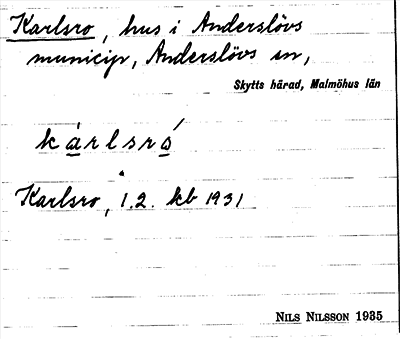 Karlsro, hus i Anderslövs
municip, Anderslövs sn,
Skytts härad, Malmöhus län
kàrlsró
Karlsro, 1.2. kb 1931
NILS NILSSON 1935